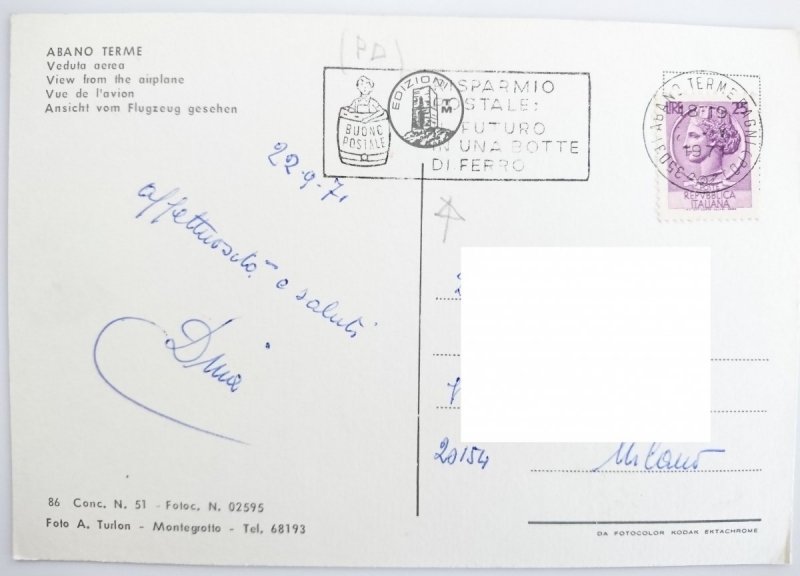 ABANO TERME
Veduta aerea
View from the airplane
Vue de l'avion
Ansicht vom Flugzeug gesehen
(PD)
BUONO
POSTALE
EDIZIONI
TM
RISPARMIO
POSTALE:
FUTURO
IN UNA BOTTE
DI FERRO
ABANO TERME
18-19
LIRE 25
POSTE
REPVBBLICA
ITALIANA
22-9-71
affettuosità e saluti
Dina
20154
Milano
86 Conc. N. 51 - Fotoc. N. 02595
Foto A. Turlon - Montegrotto - Tel. 68193
DA FOTOCOLOR KODAK EKTACHROME